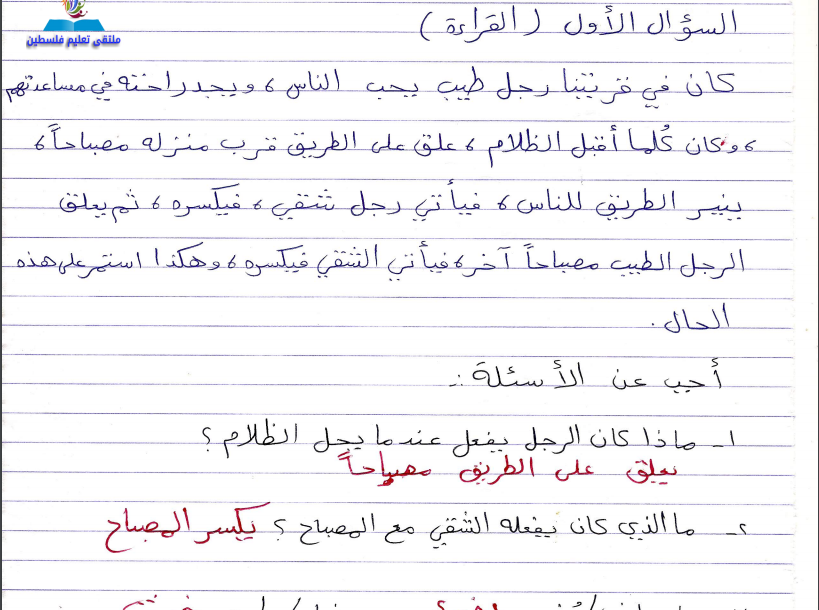 ملتقى تعليم فلسطين
السؤال الأول (القراءة)
كان في قريتنا رجل طيب يحب الناس، ويجد راحته في مساعدتهم
، وكان كُلما أقبل الظلام، علق على الطريق قرب منزله مصباحاً،
ينير الطريق للناس، فيأتي رجل شقي، فيكسره، ثم يعلق
الرجل الطيب مصباحاً آخر، فيأتي الشقي فيكسره، وهكذا استمر على هذه
الحال.
أجب عن الأسئلة :-
١- ماذا كان الرجل يفعل عندما يحل الظلام؟
يعلق على الطريق مصباحاً
٢- ما الذي كان يفعله الشقي مع المصباح؟ يكسر المصباح